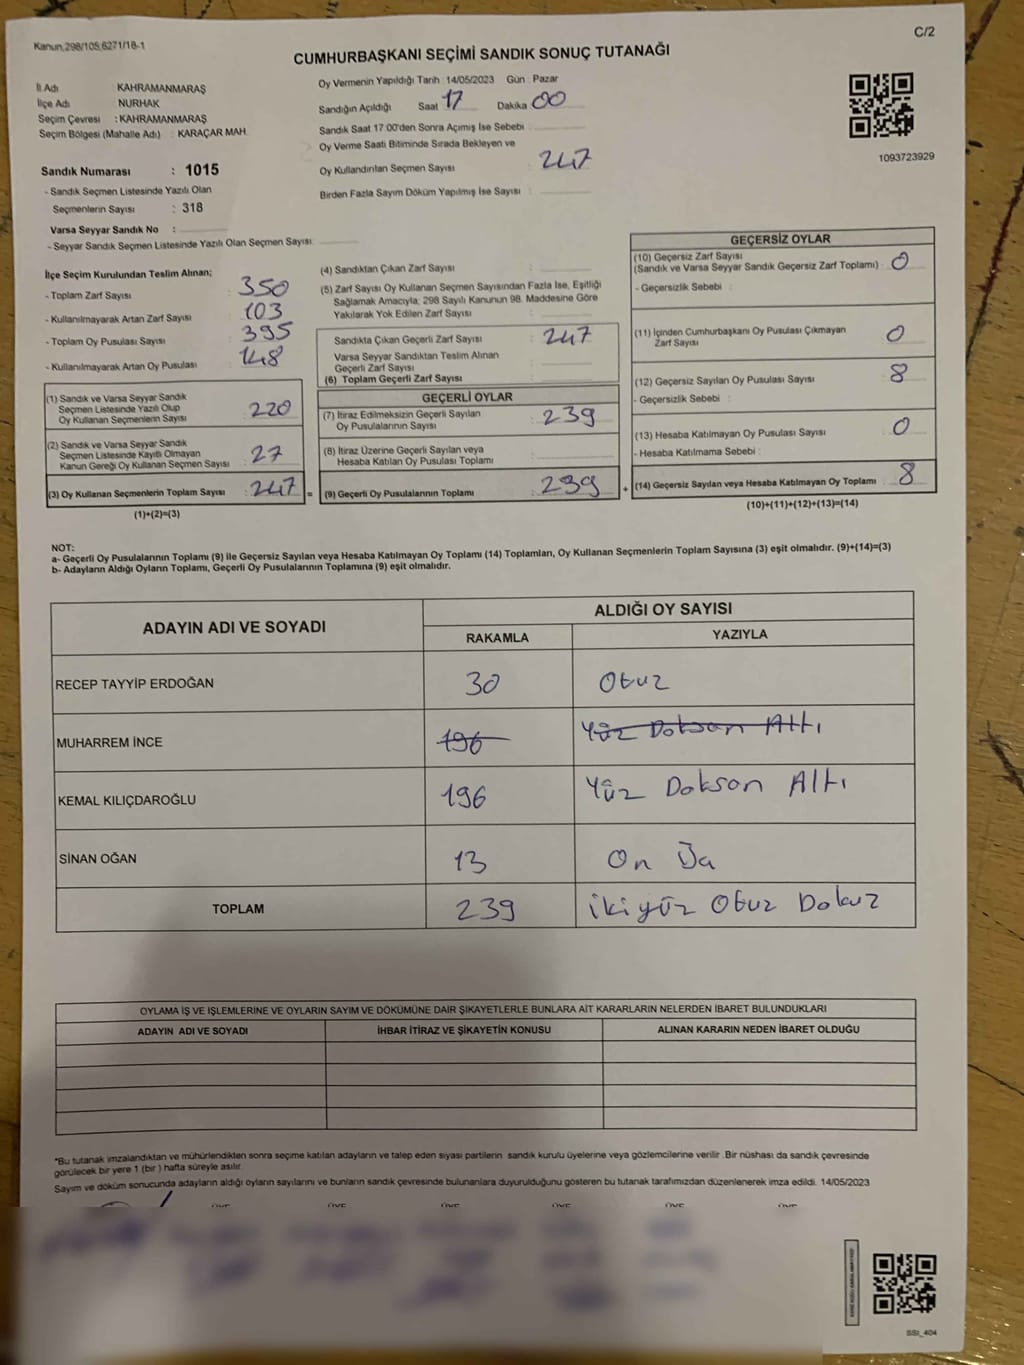 Kanun,298/105,6271/18-1
C/2
CUMHURBAŞKANI SEÇİMİ SANDIK SONUÇ TUTANAĞI
İl Adı : KAHRAMANMARAŞ
İlçe Adı : NURHAK
Seçim Çevresi : KAHRAMANMARAŞ
Seçim Bölgesi (Mahalle Adı) : KARAÇAR MAH.
Sandık Numarası : 1015
- Sandık Seçmen Listesinde Yazılı Olan
Seçmenlerin Sayısı : 318
Varsa Seyyar Sandık No :
- Seyyar Sandık Seçmen Listesinde Yazılı Olan Seçmen Sayısı:
Oy Vermenin Yapıldığı Tarih : 14/05/2023 Gün : Pazar
Sandığın Açıldığı Saat 17 Dakika 00
Sandık Saat 17:00'den Sonra Açımış İse Sebebi :
Oy Verme Saati Bitiminde Sırada Bekleyen ve
Oy Kullandırılan Seçmen Sayısı : 247
Birden Fazla Sayım Döküm Yapılmış İse Sayısı :
1093723929
İlçe Seçim Kurulundan Teslim Alınan;
- Toplam Zarf Sayısı : 350
- Kullanılmayarak Artan Zarf Sayısı : 103
- Toplam Oy Pusulası Sayısı : 395
- Kullanılmayarak Artan Oy Pusulası : 148
(1) Sandık ve Varsa Seyyar Sandık
Seçmen Listesinde Yazılı Olup
Oy Kullanan Seçmenlerin Sayısı : 220
(2) Sandık ve Varsa Seyyar Sandık
Seçmen Listesinde Kayıtlı Olmayan
Kanun Gereği Oy Kullanan Seçmen Sayısı : 27
(3) Oy Kullanan Seçmenlerin Toplam Sayısı : 247 =
(1)+(2)=(3)
(4) Sandıktan Çıkan Zarf Sayısı :
(5) Zarf Sayısı Oy Kullanan Seçmen Sayısından Fazla İse, Eşitliği
Sağlamak Amacıyla; 298 Sayılı Kanunun 98. Maddesine Göre
Yakılarak Yok Edilen Zarf Sayısı :
Sandıkta Çıkan Geçerli Zarf Sayısı : 247
Varsa Seyyar Sandıktan Teslim Alınan
Geçerli Zarf Sayısı :
(6) Toplam Geçerli Zarf Sayısı :
GEÇERLİ OYLAR
(7) İtiraz Edilmeksizin Geçerli Sayılan
Oy Pusulalarının Sayısı : 239
(8) İtiraz Üzerine Geçerli Sayılan veya
Hesaba Katılan Oy Pusulası Toplamı :
(9) Geçerli Oy Pusulalarının Toplamı : 239 +
GEÇERSİZ OYLAR
(10) Geçersiz Zarf Sayısı
(Sandık ve Varsa Seyyar Sandık Geçersiz Zarf Toplamı) : 0
- Geçersizlik Sebebi :
(11) İçinden Cumhurbaşkanı Oy Pusulası Çıkmayan
Zarf Sayısı : 0
(12) Geçersiz Sayılan Oy Pusulası Sayısı : 8
- Geçersizlik Sebebi :
(13) Hesaba Katılmayan Oy Pusulası Sayısı : 0
- Hesaba Katılmama Sebebi :
(14) Geçersiz Sayılan veya Hesaba Katılmayan Oy Toplamı : 8
(10)+(11)+(12)+(13)=(14)
NOT:
a- Geçerli Oy Pusulalarının Toplamı (9) ile Geçersiz Sayılan veya Hesaba Katılmayan Oy Toplamı (14) Toplamları, Oy Kullanan Seçmenlerin Toplam Sayısına (3) eşit olmalıdır. (9)+(14)=(3)
b- Adayların Aldığı Oyların Toplamı, Geçerli Oy Pusulalarının Toplamına (9) eşit olmalıdır.
ADAYIN ADI VE SOYADI ALDIĞI OY SAYISI
RAKAMLA YAZIYLA
RECEP TAYYİP ERDOĞAN 30 Otuz
MUHARREM İNCE 196 Yüz Doksan Altı
KEMAL KILIÇDAROĞLU 196 Yüz Doksan Altı
SİNAN OĞAN 13 On
TOPLAM 239 ikiyüz Otuz Dokuz
OYLAMA İŞ VE İŞLEMLERİNE VE OYLARIN SAYIM VE DÖKÜMÜNE DAİR ŞİKAYETLERLE BUNLARA AİT KARARLARIN NELERDEN İBARET BULUNDUKLARI
ADAYIN ADI VE SOYADI İHBAR İTİRAZ VE ŞİKAYETİN KONUSU ALINAN KARARIN NEDEN İBARET OLDUĞU
*Bu tutanak imzalandıktan ve mühürlendikten sonra seçime katılan adayların ve talep eden siyasi partilerin sandık kurulu üyelerine veya gözlemcilerine verilir .Bir nüshası da sandık çevresinde
görülecek bir yere 1 (bir ) hafta süreyle asılır.
Sayım ve döküm sonucunda adayların aldığı oyların sayılarını ve bunların sandık çevresinde bulunanlara duyurulduğunu gösteren bu tutanak tarafımızdan düzenlenerek imza edildi. 14/05/2023
SSI_404